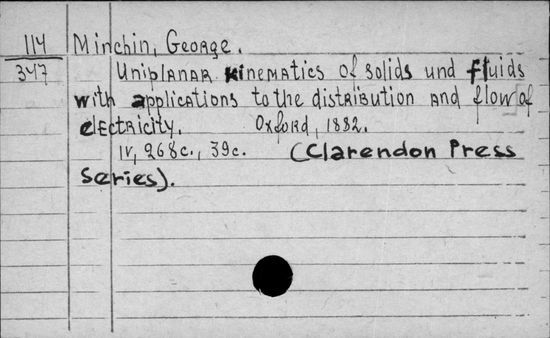 114 Minchin, George.
347 Uniplanar kinematics of solids und fluids
with applications to the distribution and flow of
electricity. Oxford, 1882.
IV, 268c., 39c. (Clarendon Press
Series).